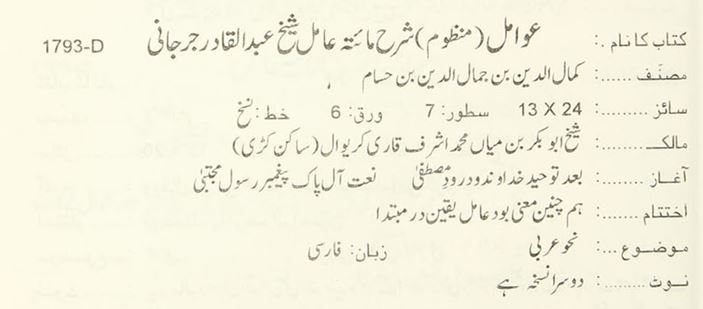 کتاب کا نام .: عوامل (منظوم) شرح مائتہ عامل شیخ عبدالقادر جرجانی 1793-D
مصنف ......: کمال الدین بن جمال الدین بن حسام
سائز .........: 13 X 24 سطور: 7 ورق: 6 خط: نسخ
مالک.........: شیخ ابوبکر بن میاں محمد اشرف قاری کریوال (ساکن کڑی)
آغاز .........: بعد توحید خداوند و درود مصطفیٰ نعت آل پاک پیغمبر رسول مجتبیٰ
اختتام .......: ہم چنین معنی بود عامل یقین در مبتدا
موضوع ...: نحو عربی زبان: فارسی
نوٹ.........: دوسرا نسخہ ہے